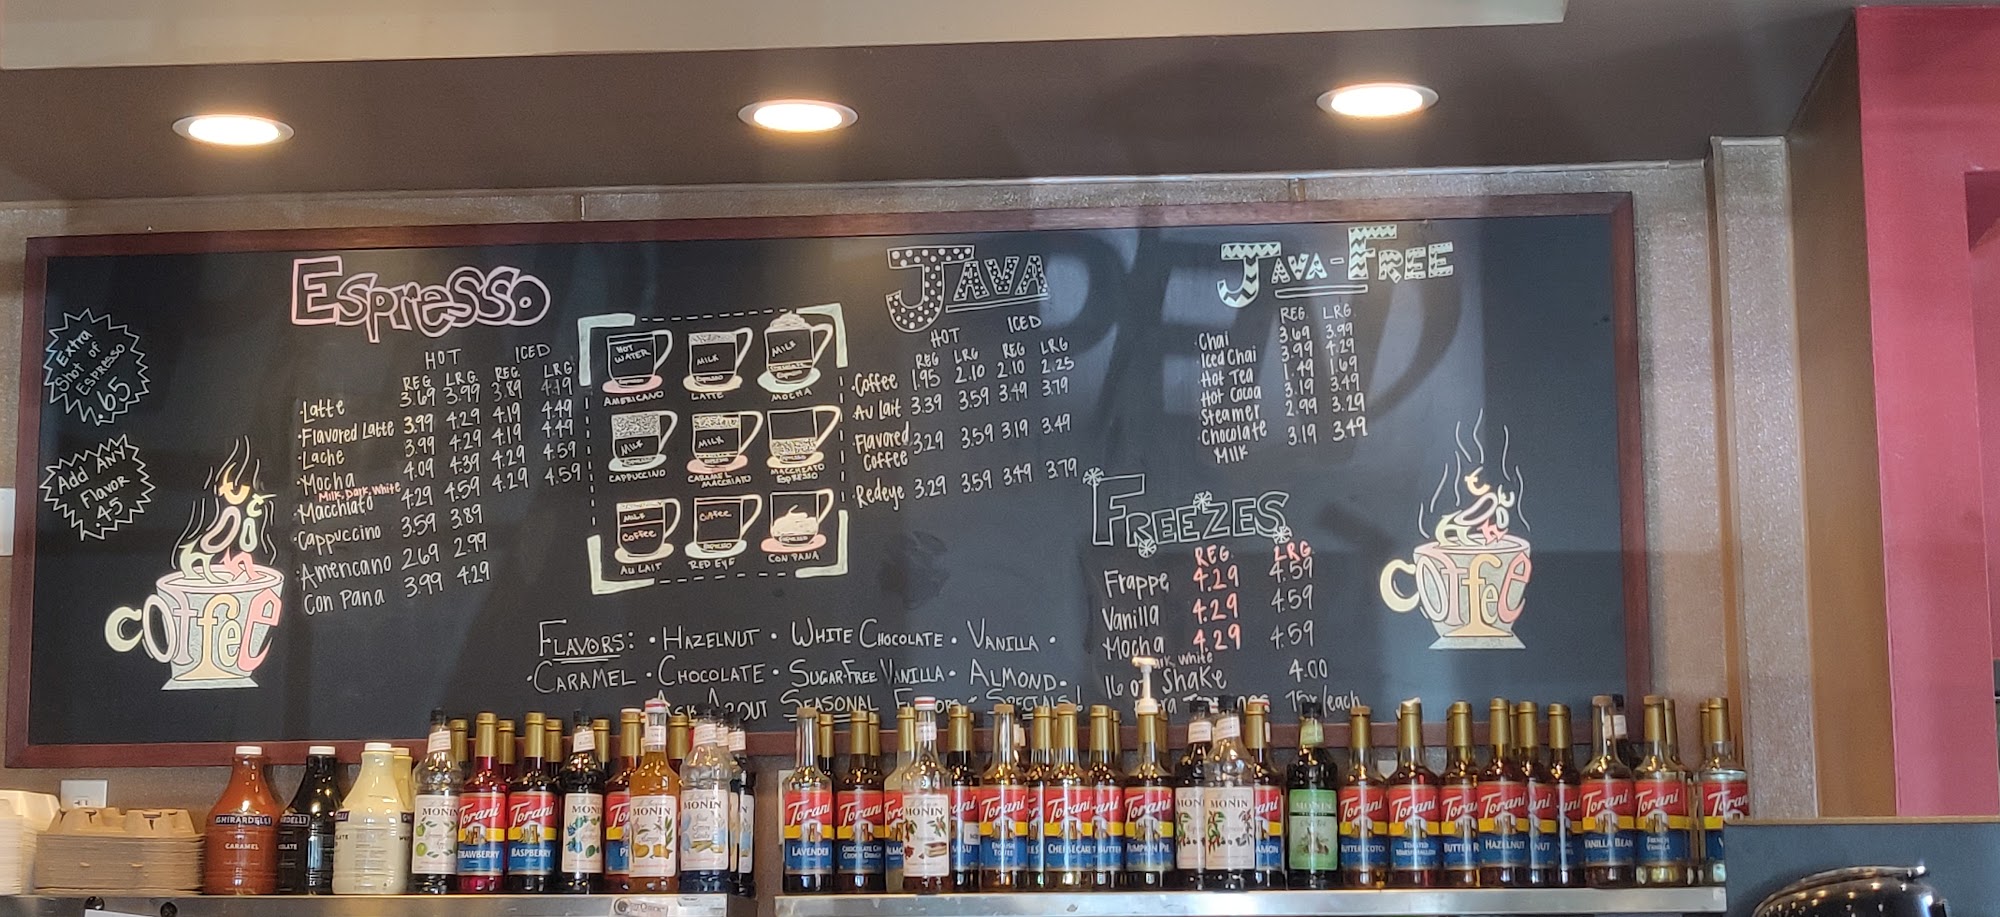 Extra
Shot of
ESPRESSO
.65
Add ANY
Flavor
.45
hot
coffee
Espresso
HOT ICED
REG. LRG. REG. LRG.
·Latte 3.69 3.99 3.89 4.19
·Flavored Latte 3.99 4.29 4.19 4.49
·Lache 3.99 4.29 4.19 4.49
·Mocha 4.09 4.39 4.29 4.59
Milk, Dark, White
·Macchiato 4.29 4.59 4.29 4.59
·Cappuccino 3.59 3.89
·Americano 2.69 2.99
Con Pana 3.99 4.29
HOT WATER
ESPRESSO
AMERICANO
MILK
ESPRESSO
LATTE
MILK
ESPRESSO
MOCHA
MILK
ESPRESSO
CAPPUCCINO
MILK
ESPRESSO
CARAMEL
MACCHIATO
ESPRESSO
MACCHIATO
ESPRESSO
MILK
COFFEE
AU LAIT
COFFEE
ESPRESSO
RED EYE
ESPRESSO
CON PANA
JAVA
HOT ICED
REG LRG REG LRG
·Coffee 1.95 2.10 2.10 2.25
·Au Lait 3.39 3.59 3.49 3.79
·Flavored
Coffee 3.29 3.59 3.19 3.49
·Redeye 3.29 3.59 3.49 3.79
JAVA-FREE
REG. LRG.
·Chai 3.69 3.99
·Iced Chai 3.99 4.29
·Hot Tea 1.49 1.69
·Hot Cocoa 3.19 3.49
·Steamer 2.99 3.29
·Chocolate
Milk 3.19 3.49
FREEZES
REG. LRG.
Frappe 4.29 4.59
Vanilla 4.29 4.59
Mocha 4.29 4.59
White
16 oz Shake 4.00
/each
hot
coffee
FLAVORS: · HAZELNUT · WHITE CHOCOLATE · VANILLA ·
·CARAMEL · CHOCOLATE · SUGAR-FREE VANILLA · ALMOND·
ASK ABOUT SEASONAL FLAVORS & SPECIALS!
GHIRARDELLI
CARAMEL
MONIN
Torani
STRAWBERRY
Torani
RASPBERRY
MONIN
MONIN
MONIN
Torani
LAVENDER
Torani
CHOCOLATE CHIP
COOKIE DOUGH
MONIN
Torani
ENGLISH
TOFFEE
Torani
CHEESECAKE
Torani
PUMPKIN PIE
MONIN
MONIN
Torani
BUTTERSCOTCH
Torani
TOASTED
MARSHMALLOW
Torani
HAZELNUT
Torani
VANILLA BEAN
Torani
FRENCH
VANILLA
Torani